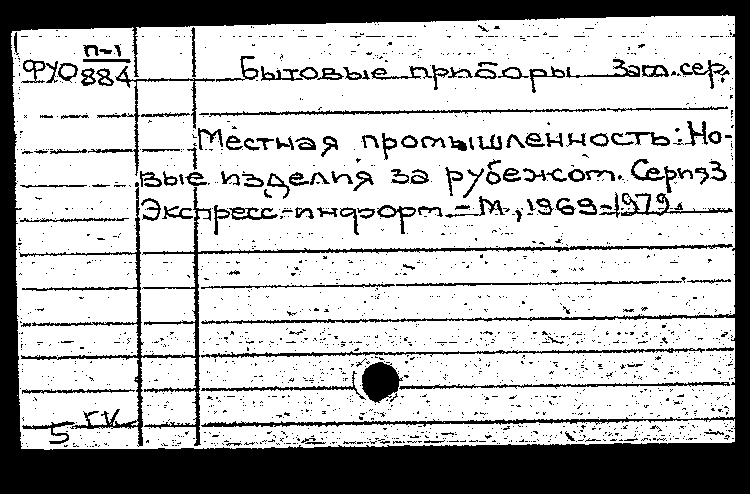 П-1
ФУО 884 Бытовые приборы. Заг. сер.
Местная промышленность: Но-
вые изделия за рубежом. Серия 3
Экспресс-информ. - М, 1969-1979.
5